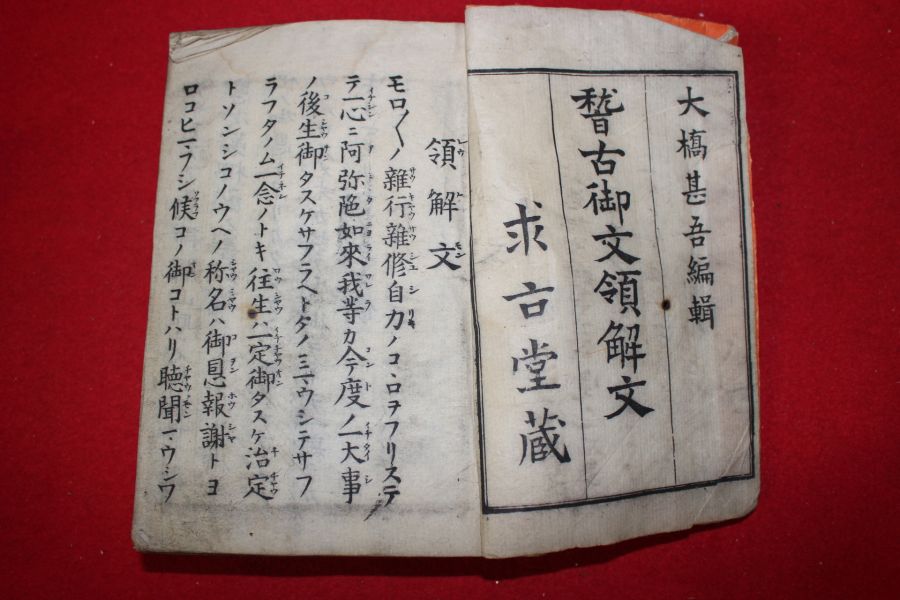 大橋甚吾編輯
稽古御文領解文
求古堂蔵
領解文
モロ〱ノ雜行雜修自力ノコヽロヲフリステ
テ一心ニ阿弥陁如來我等カ今度ノ一大事
ノ後生御タスケサフラヘトタノミマウシテサフ
ラフタノム一念ノトキ往生ハ一定御タスケ治定
トソンシコノウヘノ称名ハ御恩報謝トヨ
ロコヒマフシ候コノ御コトハリ聴聞マウシワ